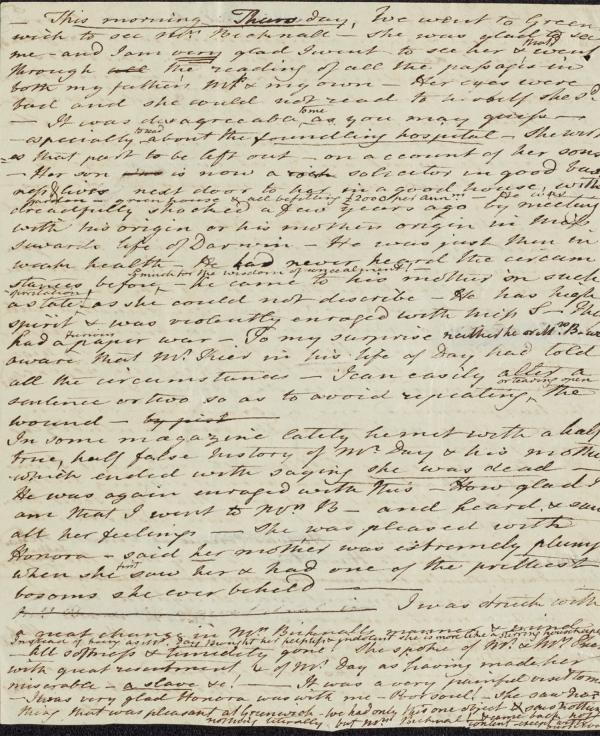 — This morning Thursday, We went to Green
wich to see Mrs. Bicknall — she was glad to see
me — and I am very glad I went to see her & that I went
through all the reading of all the passages in
both my father's MS & my own — Her eyes were
bad and she could not read to herself she sd.
— It was disagreeable to me as you may guess —
especially to read about the foundling hospital — She wish
es that part to be left out — on account of her sons
— Her son is now a rich solicitor in good busi
ness & lives next door to her in a good house with
garden — green house & all befitting £2000 per ann — He was
dreadfully shocked a few years ago by meeting
with his origin or his mothers origin in Miss
Sewards life of Darwin — He was just then in
weak health — He had never heard the circum
stances before — so much for the wisdom of concealment! — he came to his mother in such
a state of irritation as she could not describe — He has high
spirit & was violently enraged with Miss S — They
had a paper war — To my surprise neither he or Mrs B were
aware that Mr. Kier in his life of Day had told
all the circumstances — I can easily alter a
sentence or two so as to avoid repeating or tearing open the
wound —
In some magazine lately he met with a half
true, half false history of Mr. Day & his mother
which ended with saying she was dead —
He was again enraged with this — How glad I
am that I went to Mrs B — and heard & saw
all her feelings — She was pleased with
Honora — said her mother was extremely plump
when she first saw her & had one of the prettiest
bosoms she ever beheld —
I was struck with
a great change in Mrs Bicknall's manner & mind
Instead of being as Mr. Day thought her helpless & indolent she is more like a stirring housekeeper
— all softness & timidity gone! She spoke of Mr. & Mrs
with great resentment & of Mr. Day as having made her
miserable — a slave &c! — It was a very painful visit to me
I was very glad Honora was with me — Poor soul! she saw no
thing that was pleasant at Greenwich — we had only this one object & saw nothing
nothing literally but Mrs. Bicknal & came back not
content except with